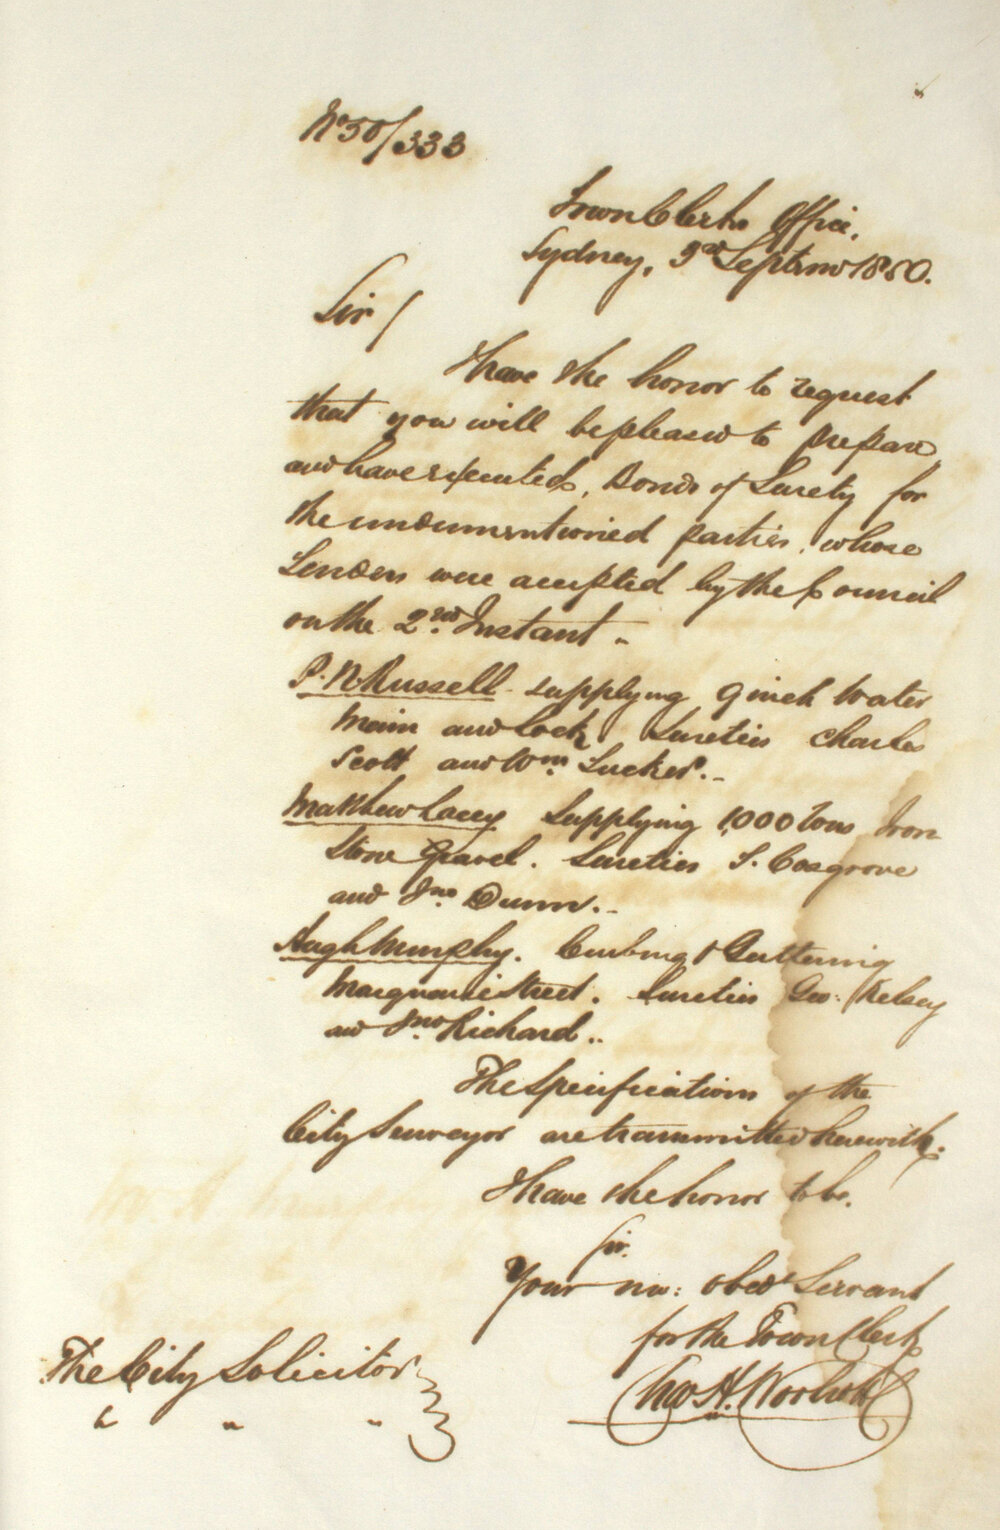 No 50/333
Town Clerks Office,
Sydney, 3rd Septemr 1850.
Sir/
I have the honor to request
that you will be pleased to prepare
and have executed, Bonds of Surety for
the undermentioned parties, whose
Tenders were accepted by the Council
on the 2nd Instant -
P. N. Russell - supplying 9 inch Water
Main and lock, Sureties Charles
Scott and Wm. Tucker. -
Matthew Lacey Supplying 1,000 tons Iron
Stone Gravel. Sureties T. Cosgrove
and Jno Dunn. -
Hugh Murphy. Curbing & Guttering
Macquarie Street. Sureties Geo: Kelsey
and Jno. Richard..
The Specifications of the
City Surveyor are transmitted herewith.
I have the honor to be.
Sir.
Your obedt Servant
for the Town Clerk
H.
The City Solicitor
" " "